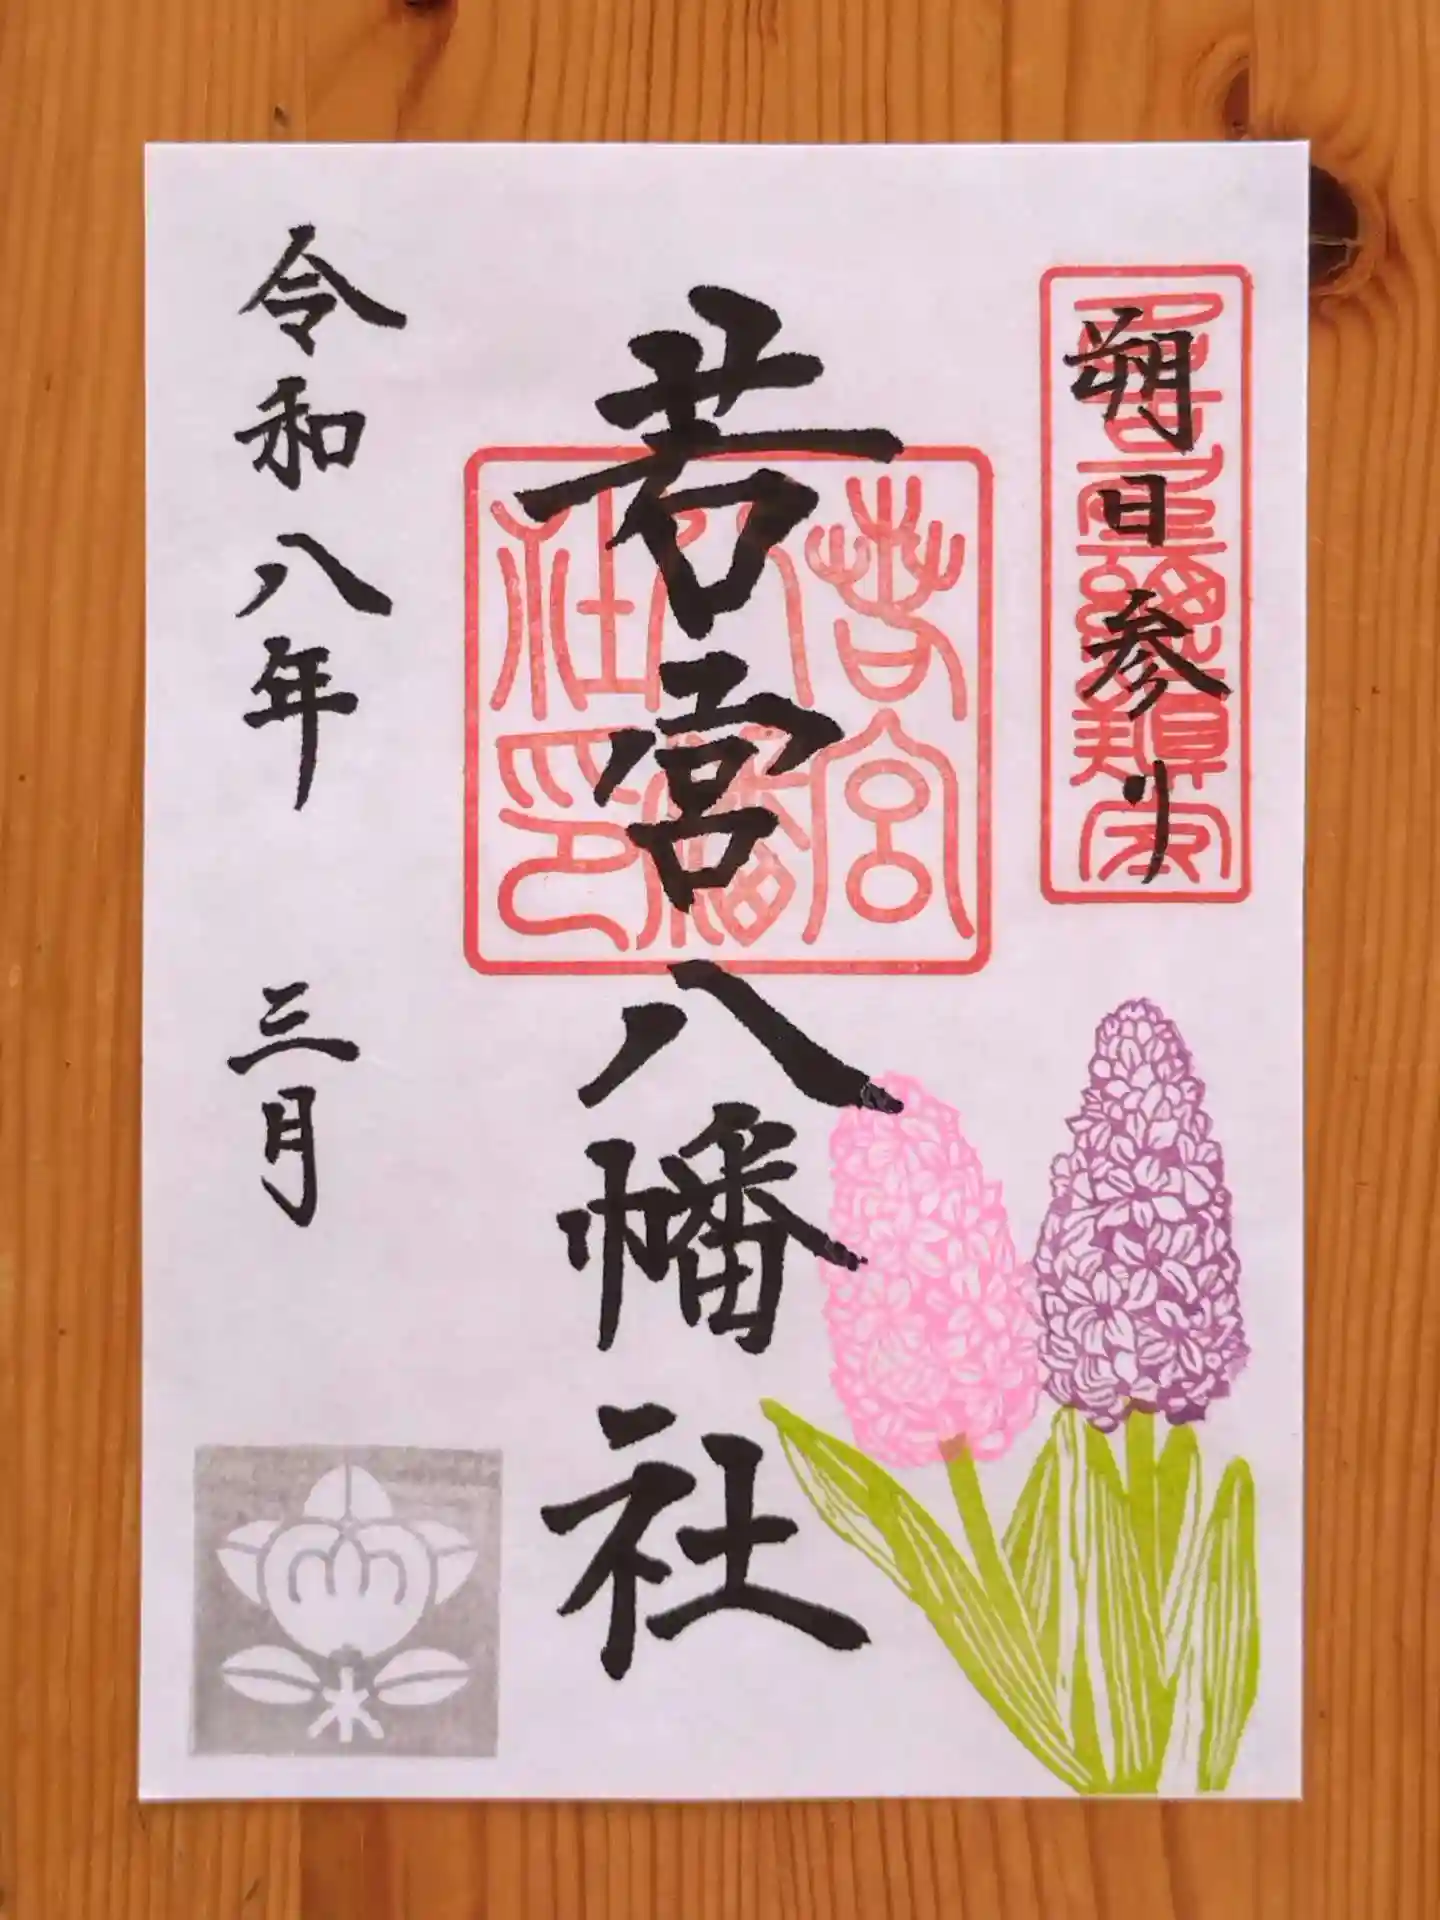 朔日参り
若宮八幡社
若宮八幡社印
令和八年 三月